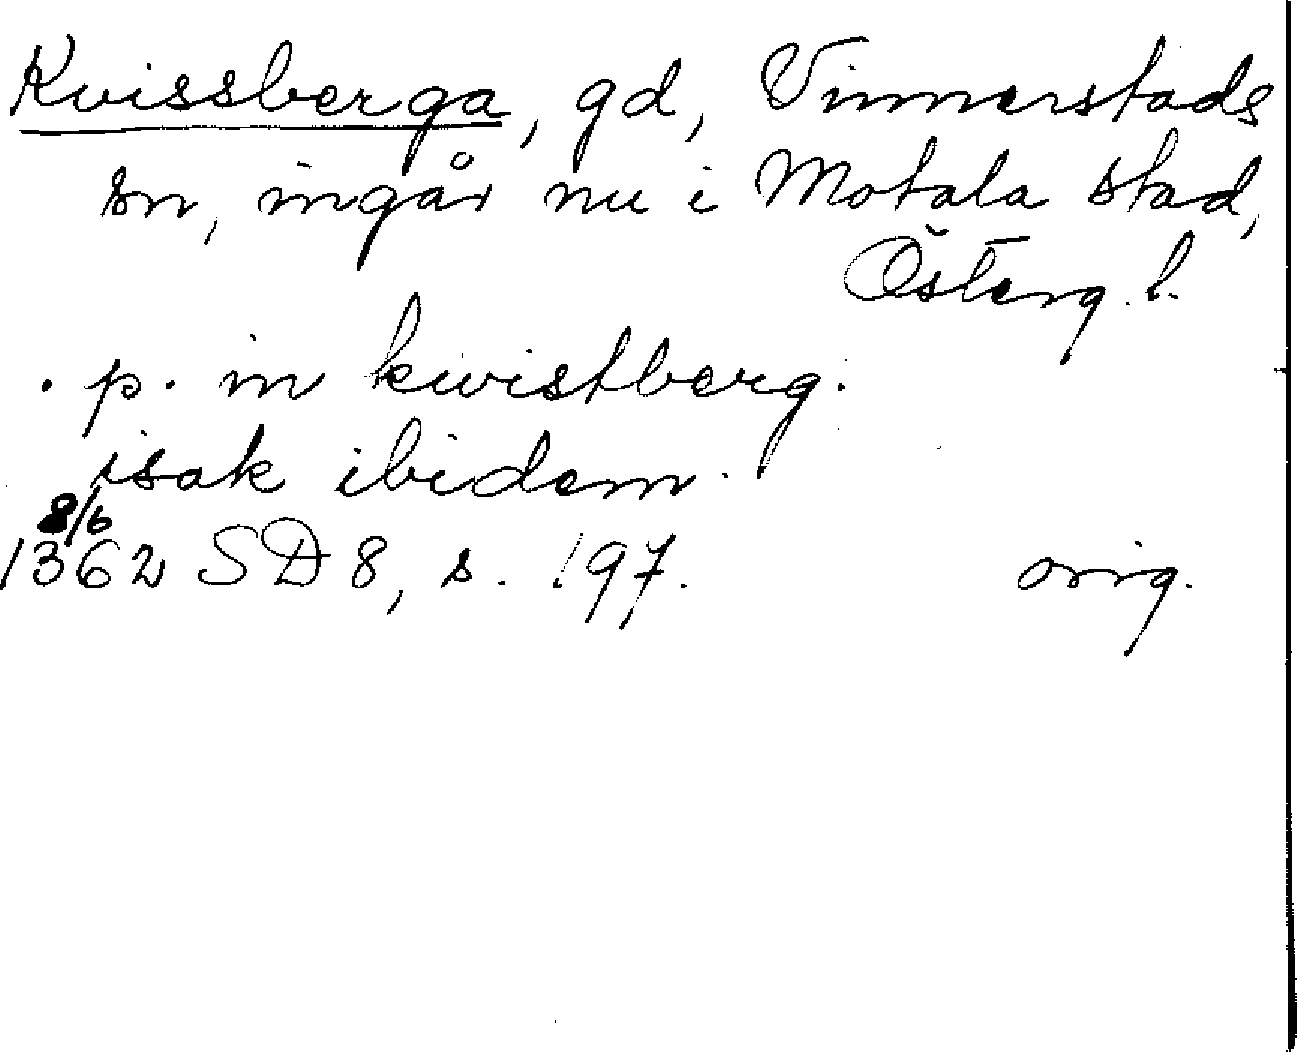 Kvissberga, gd, Vinnerstads
sn, ingår nu i Motala stad,
Österg. l.
. p. in kwistberg.
isak ibidem.
8/6
1362 SD 8, s. 197. orig.